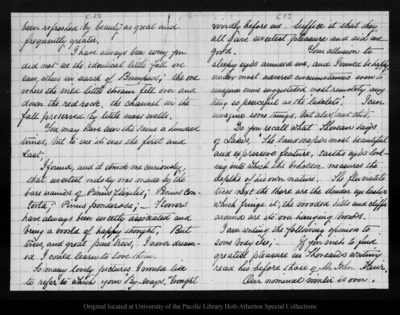 been refreshed by beauty as great and
frequently greater.
I have always been sorry you
did not see the identical little fall we
saw, when in search of ; the one
where the mild little stream fell over and
down the red rock, its channel in the
fall preserved by little moss walls.
You may have seen the same a hundred
times, but to me it was the first and
last.
I found, and it struck me curiously,
that sweetest melody was made by the
bare names of "Pinus Flexilis; Pinus Con-
torta; Pinus ponderosa; — Flowers
have always been sweetly associated and
bring a world of happy thought, But
trees, and great pine trees, I never dream-
ed I could learn to love them.
So many lovely pictures I would like
to refer to which your By-ways, brought
vividly before me. Suffice it that they
all gave sweetest pleasure and did me
good. Your allusion to
sleepy eyes amused me, and I would be happy
under most adverse circumstances even to
imagine mine
"as peaceful as the lakelets", I can
imagine some things, but alas! not this.
Do you recall what Thoreau says
of Lakes, "The landscapes most beautiful
and expressive feature, Earth's eyes look-
ing into which the beholder measures the
depths of his own nature. The fluviatile
trees next the shore are the slender eyelashes
which fringe it, the wooded hills and cliffs
around are its over hanging brows.
I am writing the following opinion to
some body else; If you wish to find
greatest pleasure in Thoreau's writing
read his before those of Mr. John Muir.
Our nominal winter is over.
Original located at University of the Pacific Library Holt-Atherton Special Collections